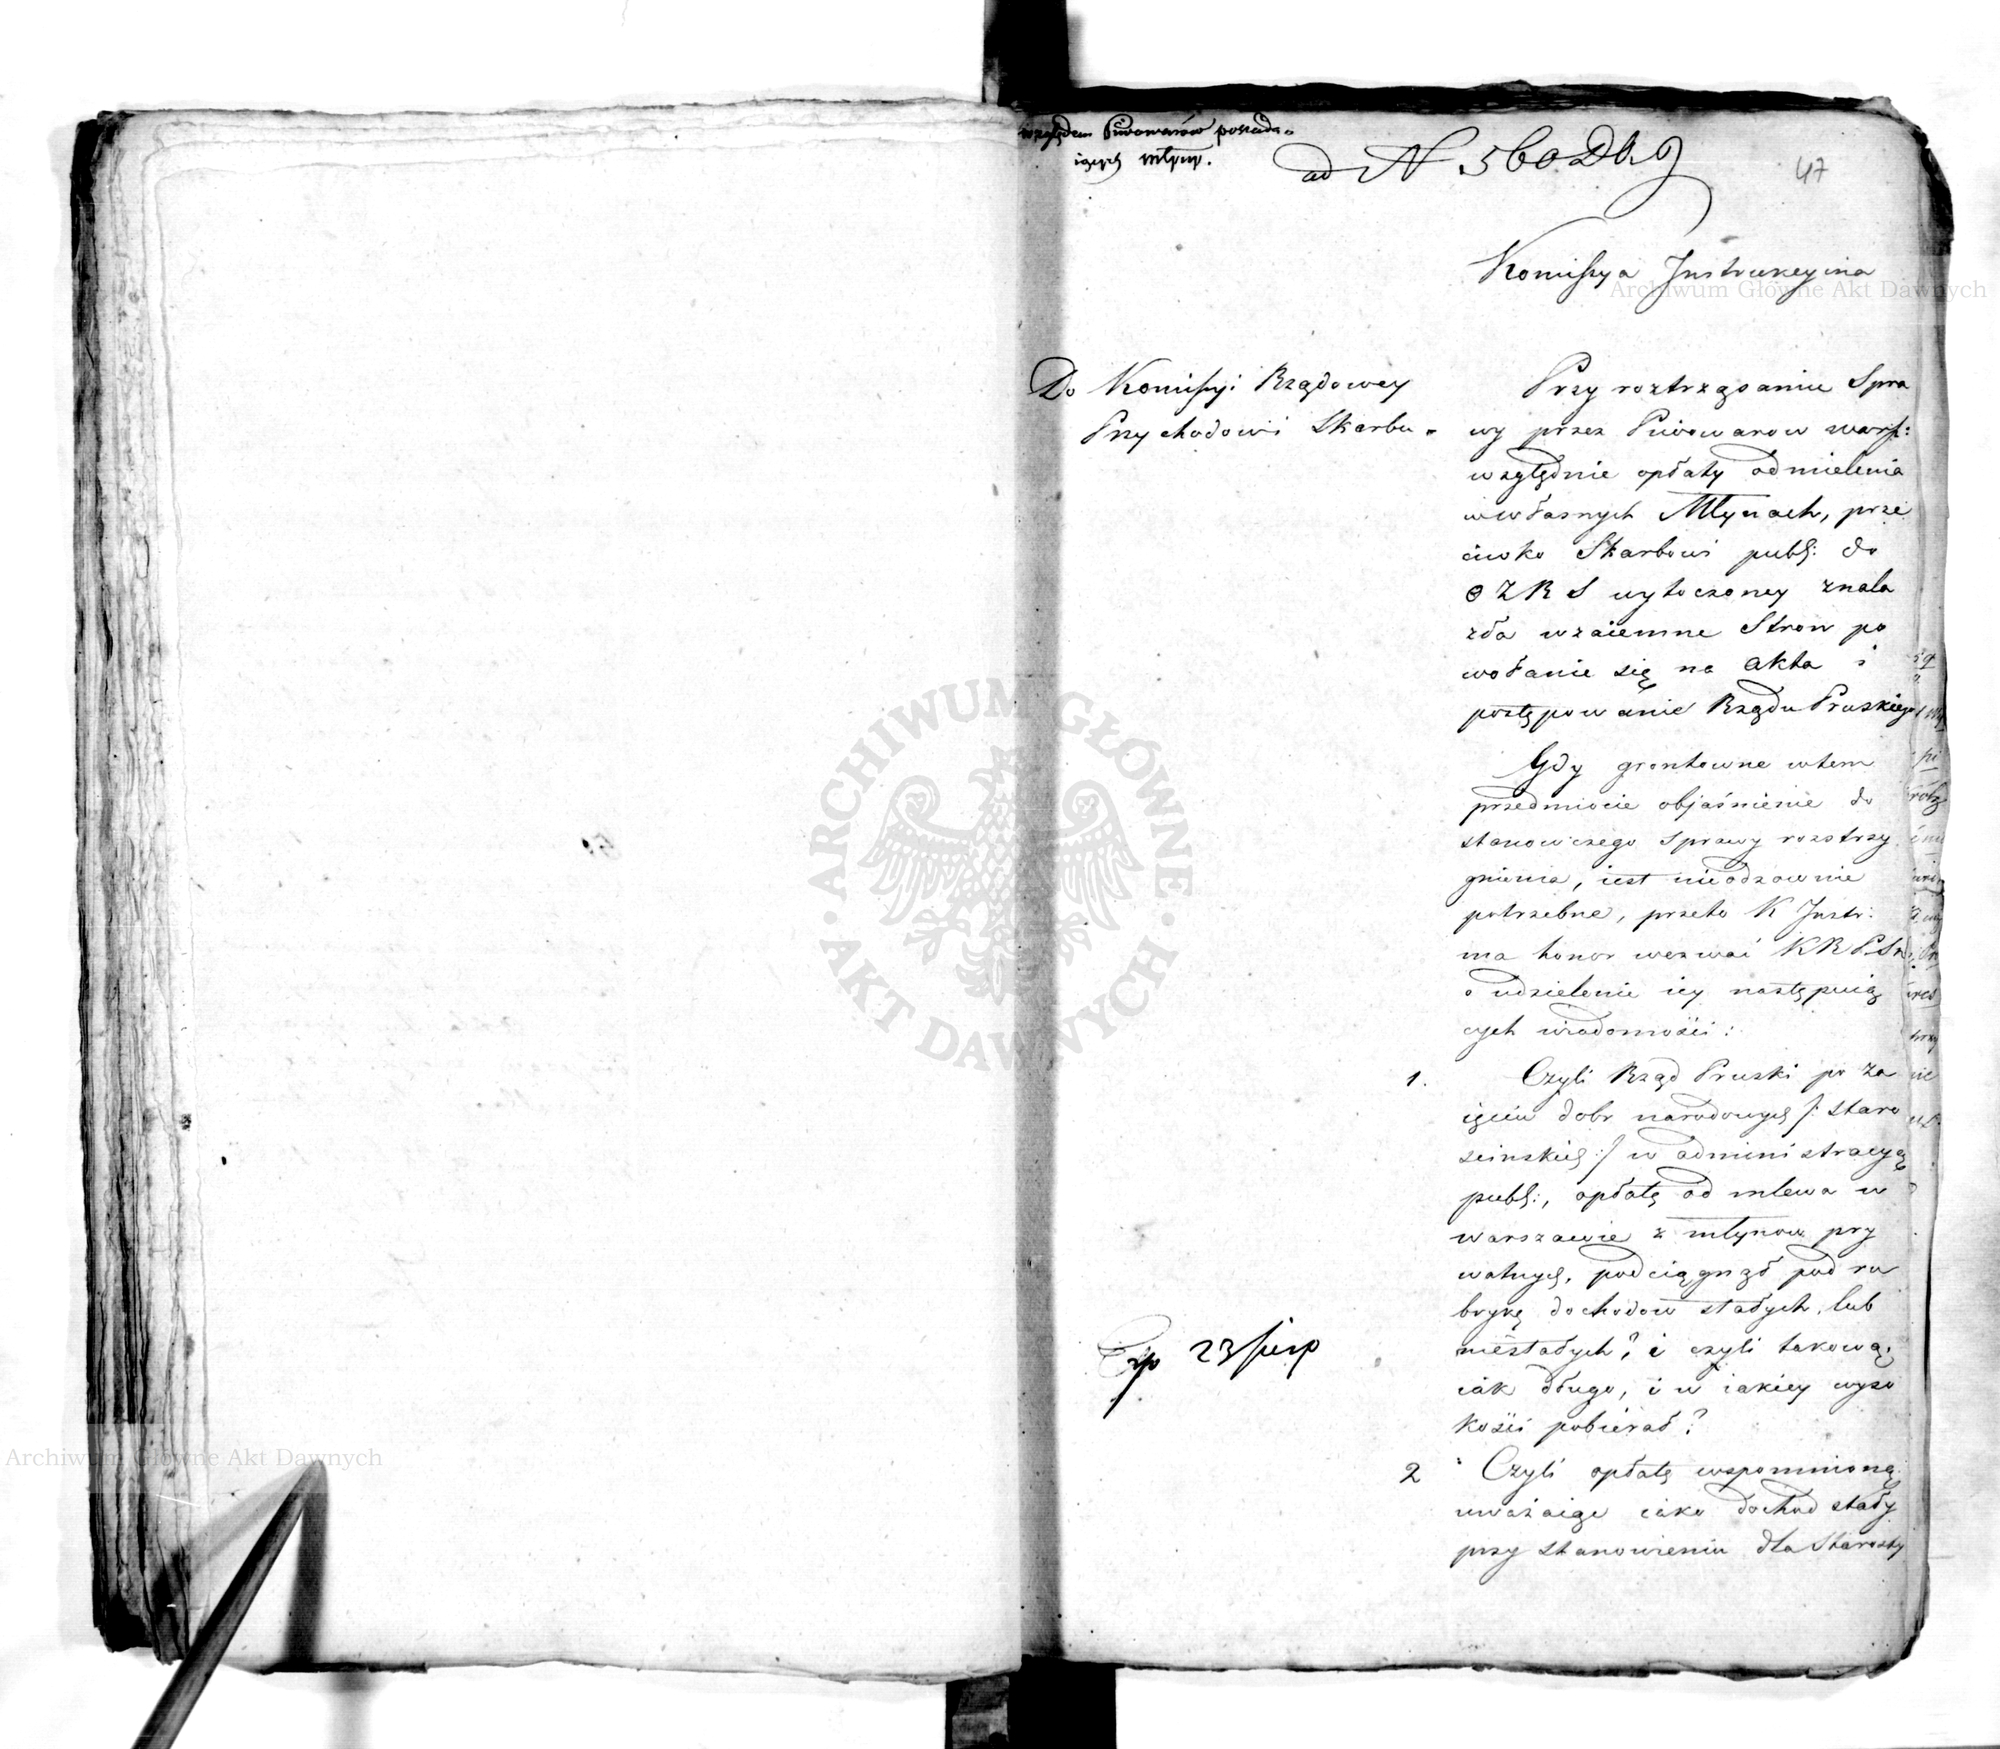 względem Piwowarów posiada-
iących młyny.
ad N 560 D.
47
Komissya Instrukcyina
Do Komissyi Rządowey
Przychodowi Skarbu.
Przy roztrząsaniu Spra
wy przez Piwowarow warsz:
względnie opłaty od mielenia
w własnych Młynach, prze
ciwko Skarbowi publ: do
OZRS wytoczoney znala
zła wzaiemne Stron po
wołanie się na akta i
postępowanie Rządu Pruskiego
Gdy grontowne w tem
przedmiocie objaśnienie do
stanowczego sprawy rozstrzy
gnienia, iest nieodzownie
potrzebne, przeto K Instr:
ma honor wezwać KRPS
o udzielenie iey następuią
cych wiadomości:
1. Czyli Rząd Pruski po za
ięciu dobr narodowych /: staro
scinskich :/ w administracyą
publ:, opłatę od mlewa w
warszawie z młynow pry
watnych, podciągnął pod ru
brykę dochodow stałych, lub
niestałych? i czyli takową,
iak długo, i w iakiey wyso
kości pobierał?
Exp 23 sierp
2 Czyli opłatę wspomnioną
uważaiąc iako dochod stały
przy stanowieniu dla Starosty
Archiwum Główne Akt Dawnych
ARCHIWUM GŁÓWNE
AKT DAWNYCH
Archiwum Główne Akt Dawnych